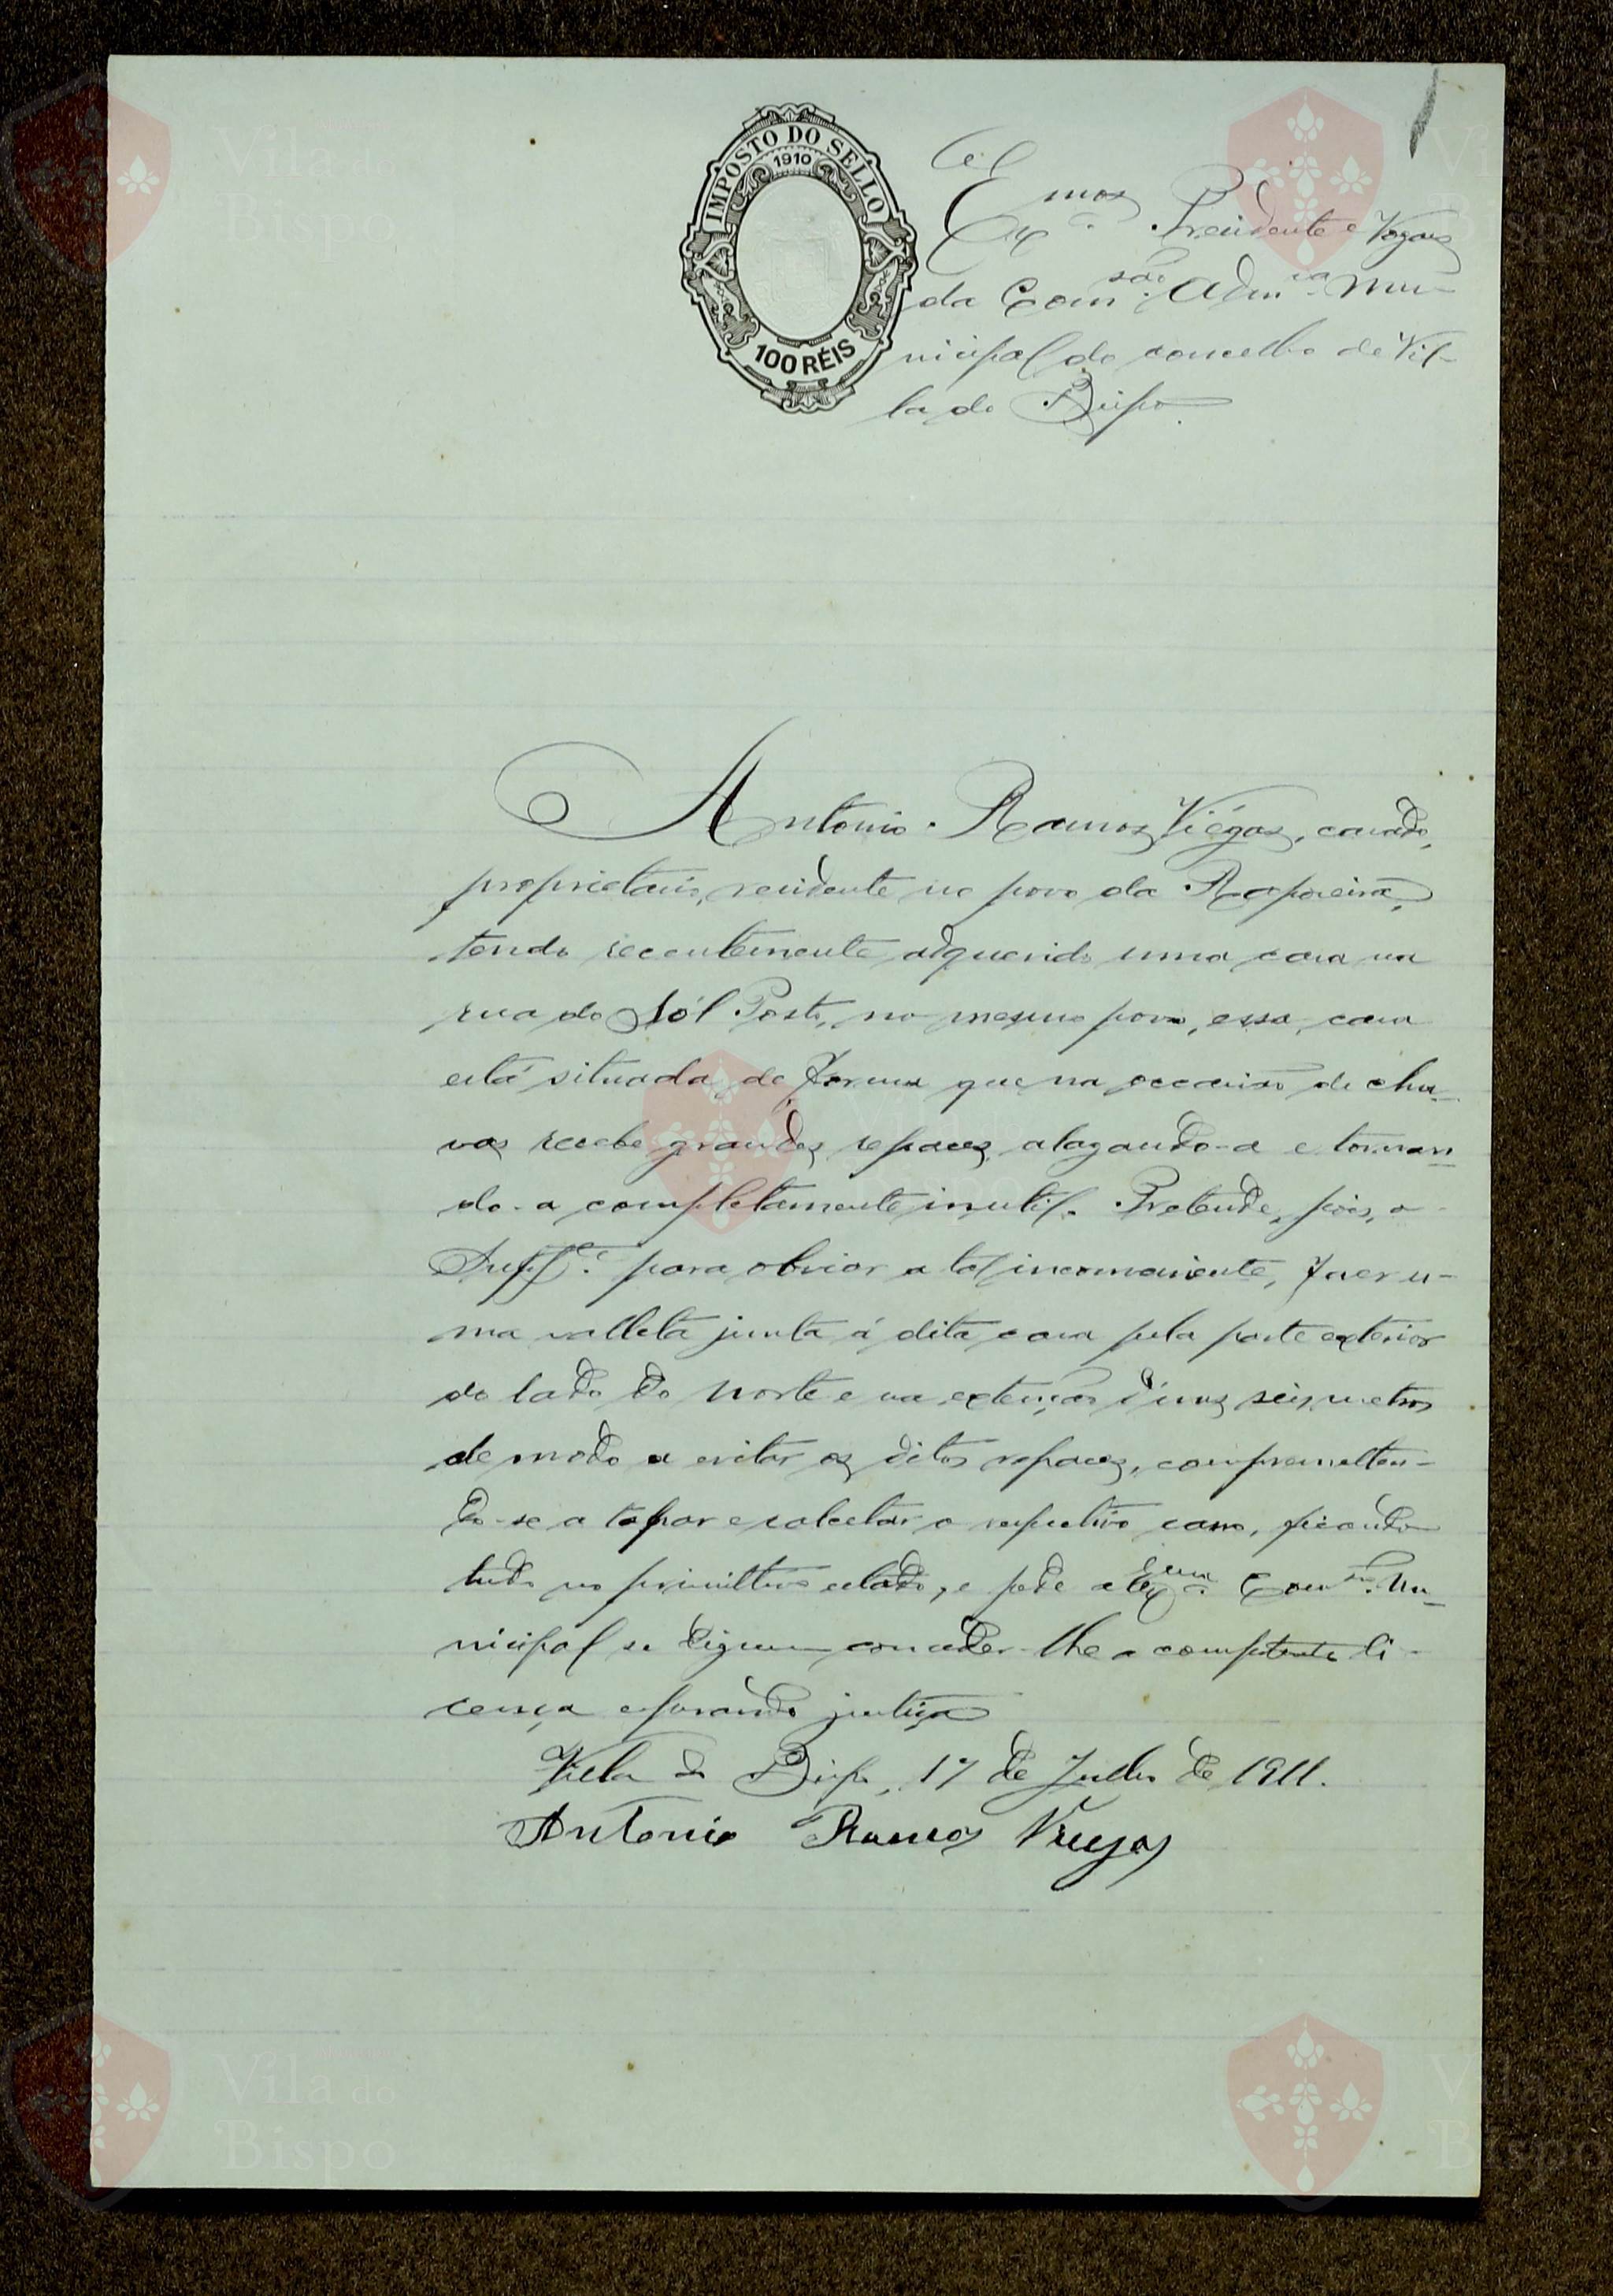 IMPOSTO DO SELLO
1910
100 RÉIS
Ex.mos Presidente e Vogaes
da Com.são Adm.va Mu-
nicipal do concelho de Vil-
la do Bispo.
Antonio Ramos Viégas, casado,
proprietario, residente no povo da Raposeira,
tendo recentemente adquerido uma casa na
rua do Sól Posto, no mesmo povo, essa casa
está situada de forma que na occasião de chu-
vas recebe grandes repaces, alagando-a e tornan-
do-a completamente inutil. Pretende, pois, o
Supp.e para obviar a tal inconveniente, fazer u-
ma valleta junta á dita casa pela parte exterior
do lado do norte e na extenção d'uns seis metros
de modo a evitar os ditos repaces, comprometten-
do-se a tapar e calcetar o respectivo cano, ficando
tudo no primittivo estado, e pede a Ex.ma Com.são Mu-
nicipal se digne conceder-lhe a competente li-
cença esperando justiça
Villa do Bispo, 17 de Julho de 1911.
Antonio Ramos Viegas
Vila do
Bispo